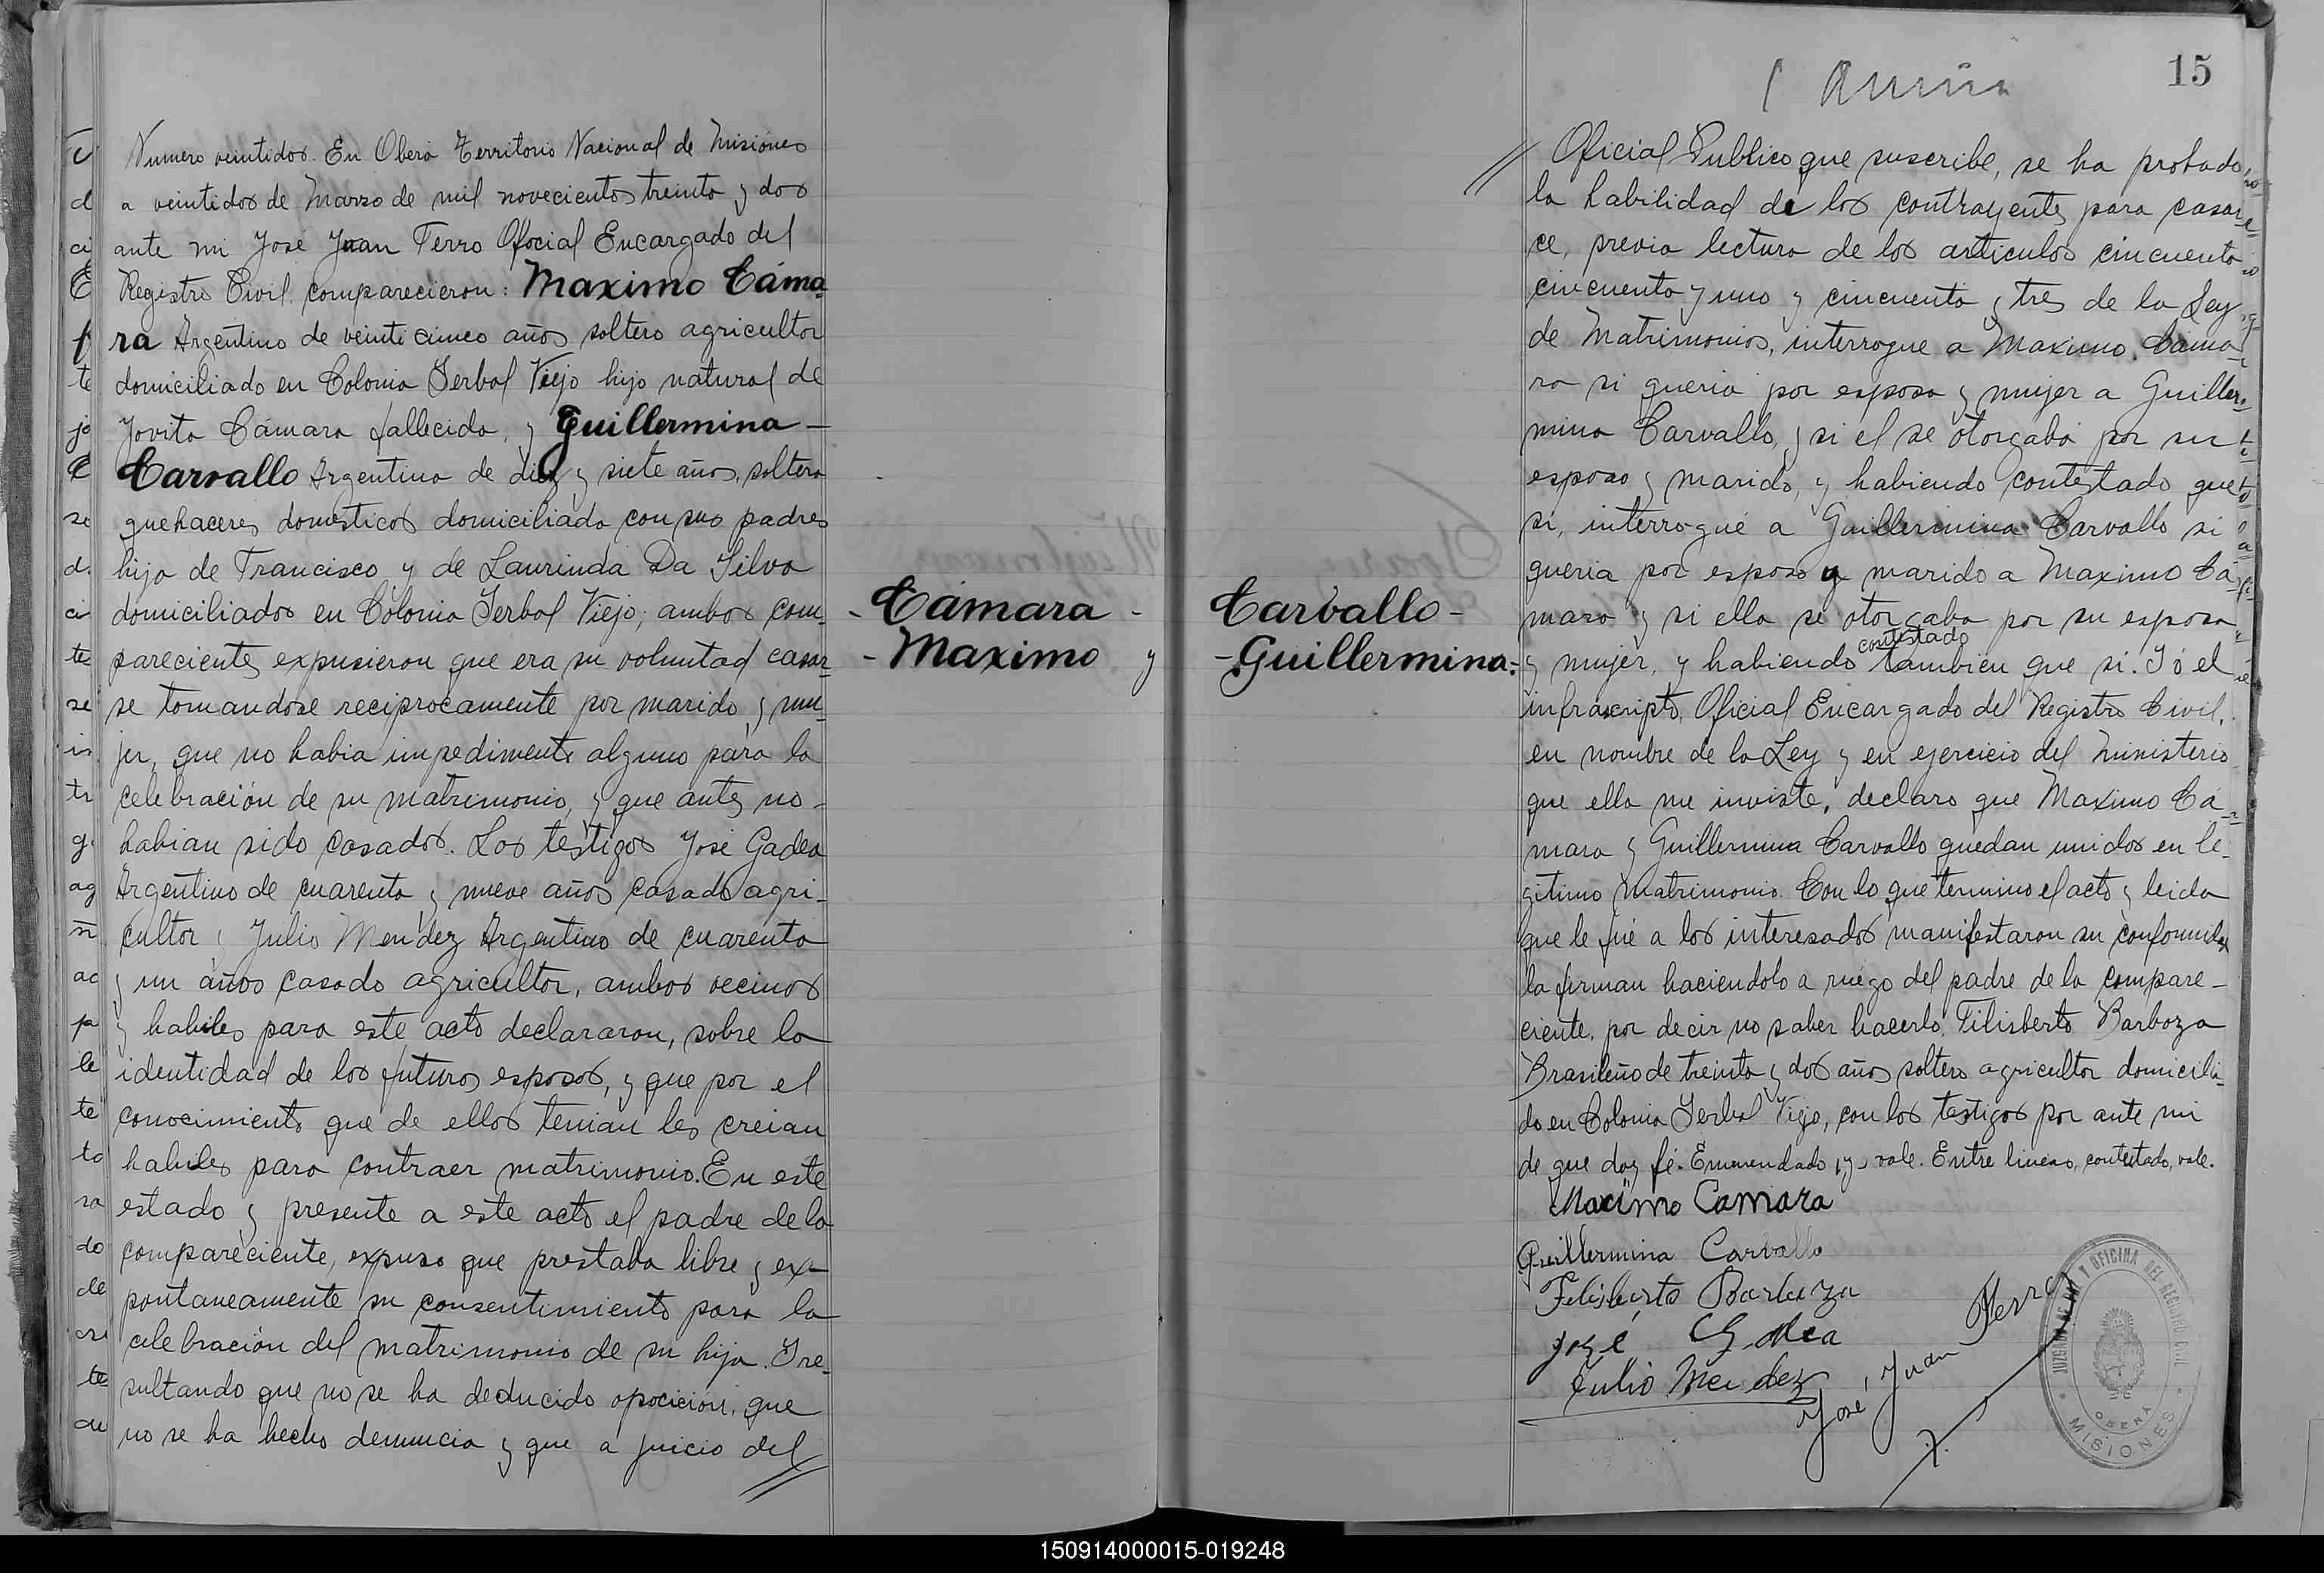 Numero veintidos. En Oberá Territorio Nacional de Misiones
a veintidos de Marzo de mil novecientos treinta y dos
ante mi José Juan Ferro Oficial Encargado del
Registro Civil, comparecieron: Maximo Cáma-
ra Argentino de veinticinco años soltero agricultor
domiciliado en Colonia Yerbal Viejo hijo natural de
Jovita Cámara fallecida, y Guillermina -
Carvallo Argentina de diez y siete años, soltera
quehaceres domesticos domiciliada con sus padres
hija de Francisco y de Laurinda Da Silva
domiciliados en Colonia Yerbal Viejo; ambos com-
parecientes expusieron que era su voluntad casar-
se tomandose reciprocamente por marido y mu-
jer, que no habia impedimento alguno para la
celebración de su matrimonio, y que antes no -
habian sido casados. Los testigos José Gadea
Argentino de cuarenta y nueve años casado agri-
cultor y Julio Mendez Argentino de cuarenta
y un años casado agricultor, ambos vecinos
y habiles para este acto declararon, sobre la
identidad de los futuros esposos, y que por el
conocimiento que de ellos tenian les creian
habiles para contraer matrimonio. En este
estado y presente a este acto el padre de la
compareciente, expuso que prestaba libre y ex-
pontaneamente su consentimiento para la
celebración del matrimonio de su hija. Y re-
sultando que no se ha deducido oposición, que
no se ha hecho denuncia y que a juicio del
- Cámara -
- Maximo y
Carvallo -
- Guillermina -
15
Oficial Publico que suscribe, se ha probado
la habilidad de los contrayentes para casar-
ce, previa lectura de los articulos cincuenta
cincuenta y uno y cincuenta y tres de la Ley
de Matrimonios, interrogue a Maximo Cáma-
ra si queria por esposa y mujer a Guiller-
mina Carvallo, y si el se otorgaba por su
esposo y marido, y habiendo contestado que
si, interrogué a Guillermina Carvallo si
queria por esposo y marido a Maximo Cá-
mara y si ella se otorgaba por su esposa
contestado
y mujer, y habiendo tambien que si. Yó el
infrascripto, Oficial Encargado del Registro Civil,
en nombre de la Ley y en ejercicio del Ministerio
que ella me inviste, declaro que Maximo Cá-
mara y Guillermina Carvallo quedan unidos en le-
gitimo matrimonio. Con lo que termino el acto y leida
que le fué a los interesados manifestaron su conformidad
la firman haciendolo a ruego del padre de la compare-
ciente, por decir no saber hacerlo, Filisberto Barboza
Brasileño de treinta y dos años soltero agricultor domicilia-
do en Colonia Yerbal Viejo, con los testigos por ante mi
de que doy fé. Enmendado, y, vale. Entre lineas, contestado, vale.
Macimo Camara
Guillermina Carvallo
Felisberto Barboza
José Gadea
Julio Mendez
José Juan Ferro
JUZGADO DE PAZ Y OFICINA DEL REGISTRO CIVIL
OBERÁ
MISIONES
150914000015-019248